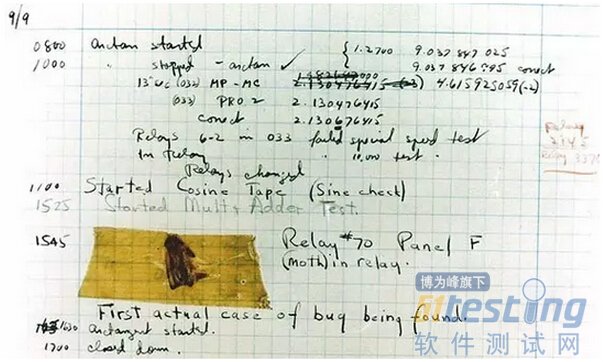 9/9
0800 arctan started { 1.2700 9.037 847 025
1000 " stopped - arctan ✓ 9.037 846 995 correct
13" uc (033) MP - MC 2.130476415 (-3) 4.615925059(-2)
(033) PRO 2 2.130476415
correct 2.130676415
Relays 6-2 in 033 failed special speed test
In Relay " 10,000 test.
Relay
2145
Relay 3370
Relays changed
1100 Started Cosine Tape (Sine check)
1525 Started Mult + Adder Test.
1545 Relay #70 Panel F
(moth) in relay.
First actual case of bug being found.
1630 arctangent started.
1700 closed down.
博为峰旗下
51testing
软件测试网